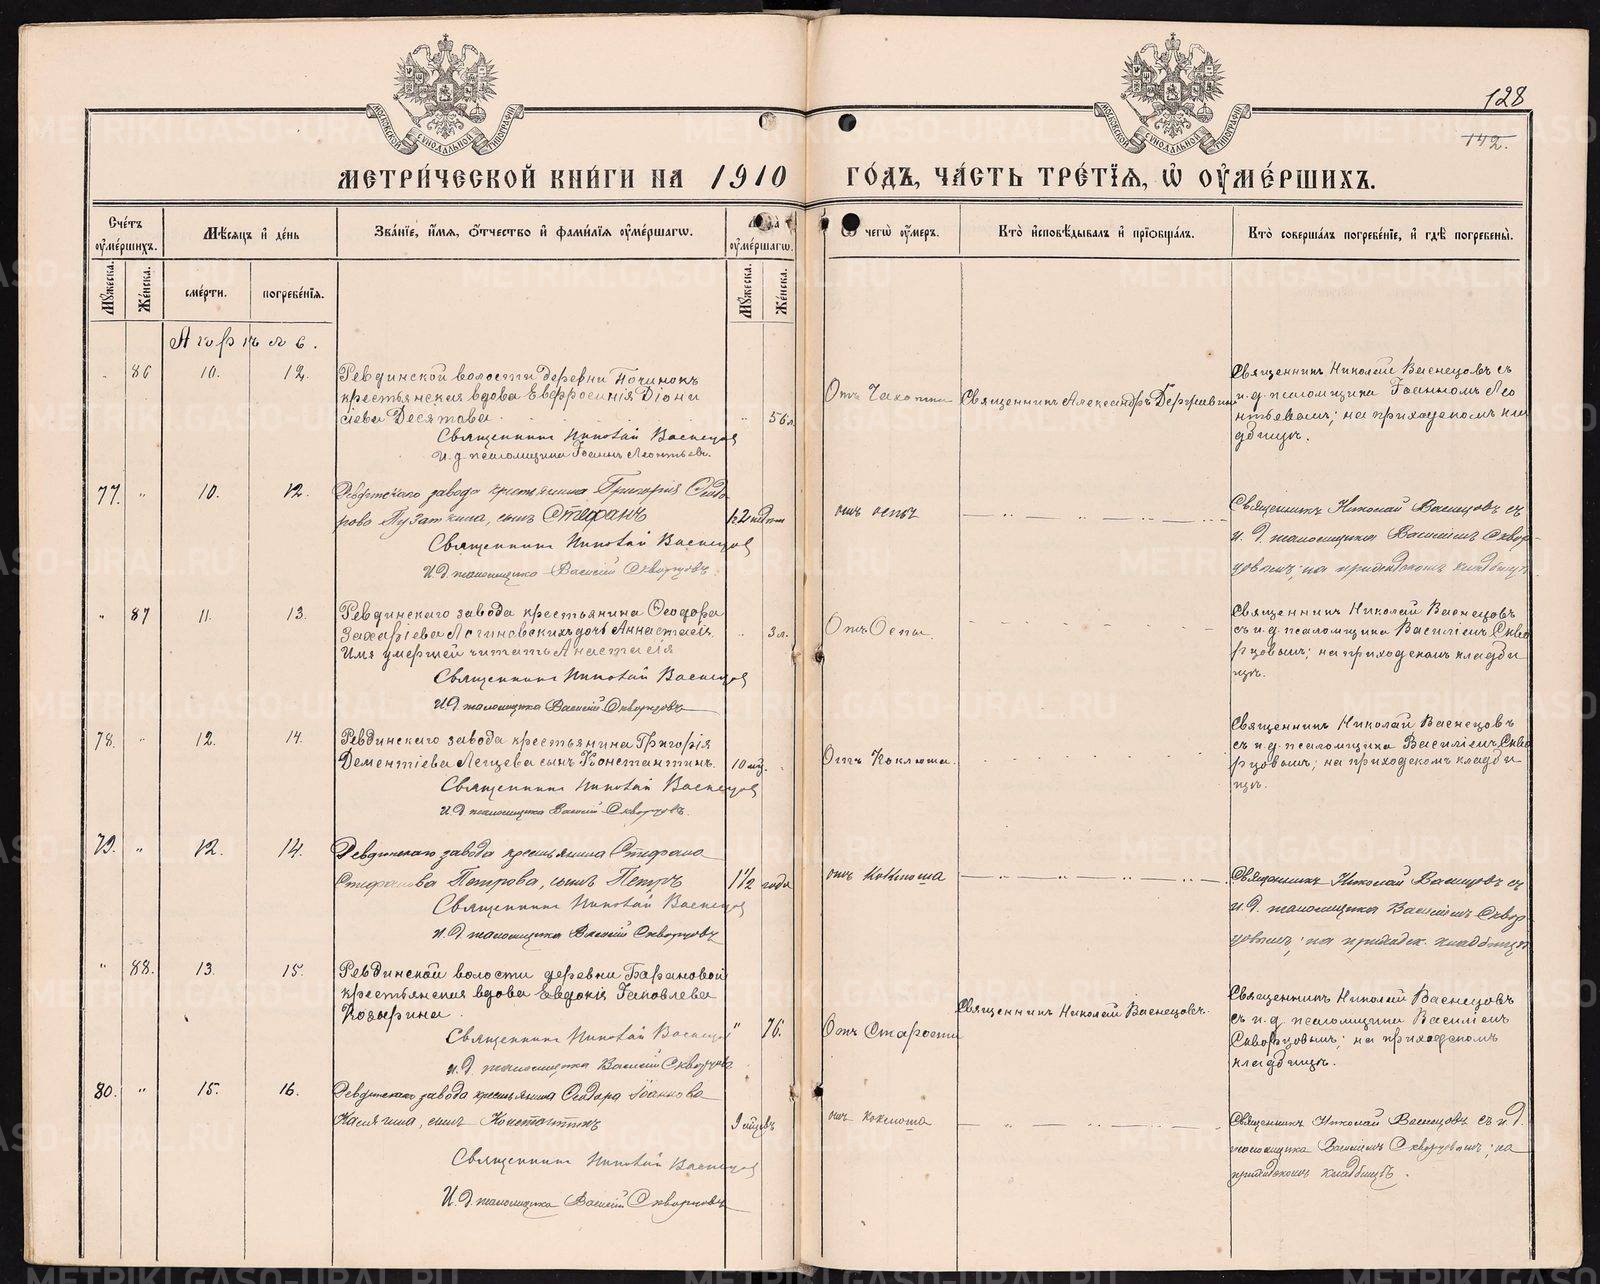 128
142.
МОСКОВСКОЙ СѴНОДАЛЬНОЙ ТИПОГРАФІИ
МОСКОВСКОЙ СѴНОДАЛЬНОЙ ТИПОГРАФІИ
МЕТРИ́ЧЕСКОЙ КНИ́ГИ НА 1910 ГО́ДЪ, ЧА́СТЬ ТРЕ́ТІѦ, Ѡ ОУМЕ́РШИХЪ.
Сче́тъ оумершихъ.
Мѣсяцъ и день
Зва́ніе, имя, отчество и фамилія оумершагѡ.
Лѣта оумершагѡ.
Ѿ чегѡ оумеръ.
Кто исповѣдывалъ и пріобщалъ.
Кто совершалъ погребеніе, и гдѣ погребены.
Мꙋжеска.
Женска.
смерти.
погребенія.
Мꙋжеска.
Женска.
Апрѣль.
86 10. 12. Ревдинской волости деревни Починокъ
крестьянская вдова Евфросинія Діони
сіева Десятова.
Священникъ Николай Васнецов
И. д. псаломщика Іоаннъ Леонтьевъ.
56 л.
Отъ Чахотки
Священникъ Александръ Державин
Священникъ Николай Васнецовъ съ
и. д. псаломщика Іоанномъ Лео
нтьевымъ; на приходскомъ кла
дбищѣ.
77. " 10. 12. Ревдинскаго завода крестьянина Григорія Ѳедо
рова Пузаткина, сынъ Стефанъ
Священникъ Николай Васнецов
И. д. псаломщика Василій Скворцовъ.
отъ оспы
Священникъ Николай Васнецовъ съ
и. д. псаломщика Василіемъ Сквор-
цовымъ; на приходскомъ кладбищѣ.
" 87 11. 13. Ревдинскаго завода крестьянина Ѳеодора
Захаріева Логиновскихъ дочь Аннастасія.
Имя умершей читать Анастасія
Священникъ Николай Васнецов
И. д. псаломщика Василій Скворцовъ
3 л.
Отъ Оспы.
Священникъ Николай Васнецовъ
съ и. д. псаломщика Василіемъ Скво
рцовымъ; на приходскомъ кладби
щѣ.
78. " 12. 14. Ревдинскаго завода крестьянина Григорія
Дементіева Лещева сынъ Константинъ.
Священникъ Николай Васнецов
И. д. псаломщика Василій Скворцовъ.
10 мц.
Отъ Коклюша.
Священникъ Николай Васнецовъ
съ и. д. псаломщика Василіемъ Скво
рцовымъ; на приходскомъ кладби
щѣ.
79. " 12. 14. Ревдинскаго завода крестьянина Стефана
Стефанова Петрова, сынъ Петръ
Священникъ Николай Васнецов
И. д. псаломщика Василій Скворцовъ
1 1/2 года
отъ коклюша
Священникъ Николай Васнецовъ съ
и. д. псаломщика Василіемъ Сквор-
цовымъ; на приходск. кладбищѣ
" 88. 13. 15. Ревдинской волости деревни Барановой
крестьянская вдова Евдокія Іаковлева
Козырина.
Священникъ Николай Васнецов
и. д. псаломщика Василій Скворцовъ
" 76.
Отъ Старости
Священникъ Николай Васнецовъ.
Священникъ Николай Васнецовъ
съ и. д. псаломщика Василіемъ
Скворцовымъ; на приходскомъ
кладбищѣ.
80. " 15. 16. Ревдинскаго завода крестьянина Ѳеодора Іоаннова
сынъ Константинъ
Священникъ Николай Васнецов
И. д. псаломщика Василій Скворцовъ
9 мѣсяцъ
отъ коклюша
Священникъ Николай Васнецовъ съ и. д.
псаломщика Василіемъ Скворцовымъ; на
приходскомъ кладбищѣ.
METRIKI.GASO-URAL.RU